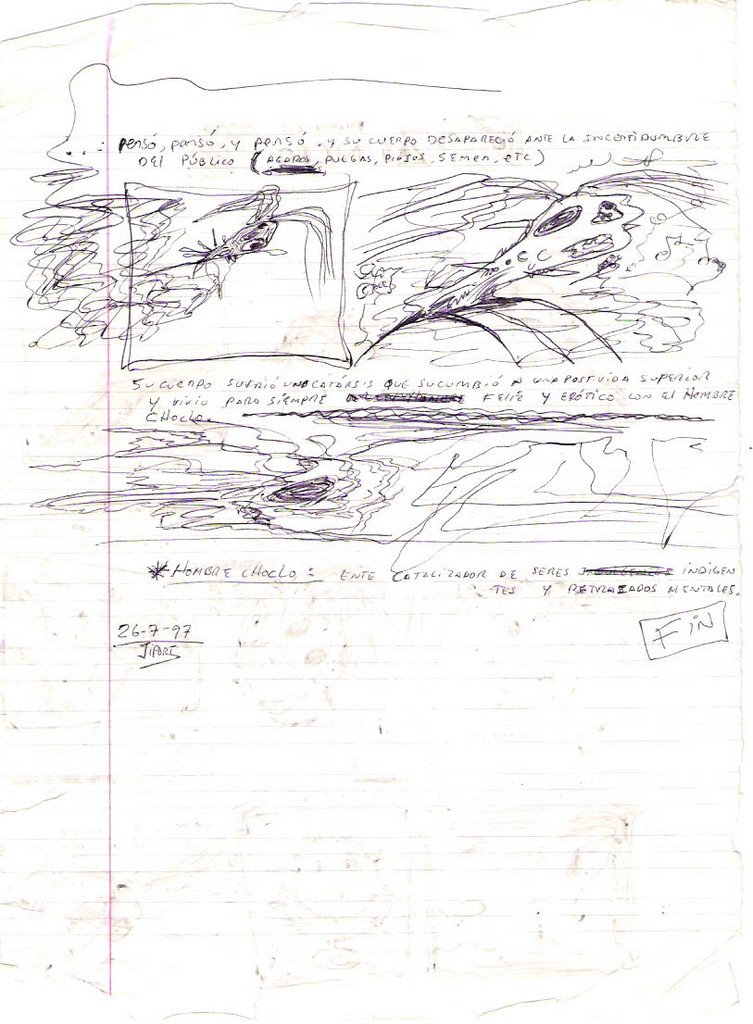 ...: PENSÓ, PENSÓ, Y PENSÓ. Y SU CUERPO DESAPARECIÓ ANTE LA INCERTIDUMBRE
DEL PÚBLICO (ACAROS, PULGAS, PIOJOS, SEMEN, ETC)
SU CUERPO SUFRIÓ UNA CATÁRSIS QUE SUCUMBIÓ A UNA POSTVIDA SUPERIOR
Y VIVIO PARA SIEMPRE FELIZ Y ERÓTICO CON EL HOMBRE
CHOCLO.
* HOMBRE CHOCLO: ENTE CATALIZADOR DE SERES INDIGEN
TES Y RETRAZADOS MENTALES.
26-7-97
FIN